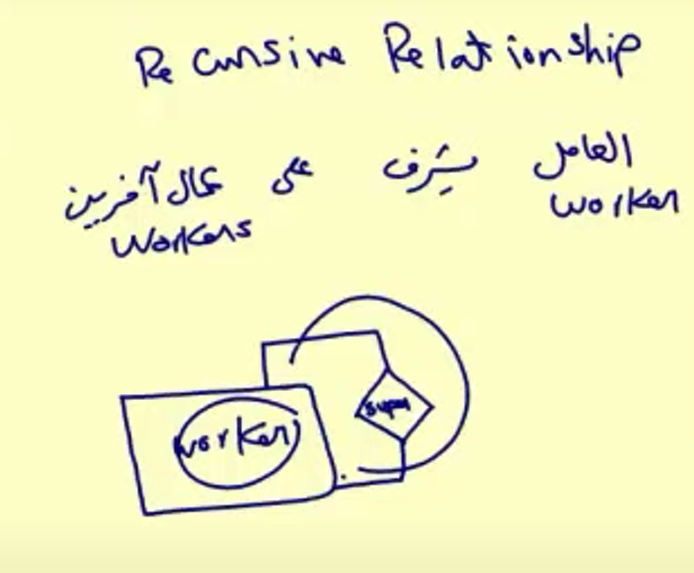 Recursive Relationship
العامل يشرف على عمال آخرين
worker
workers
worker
super